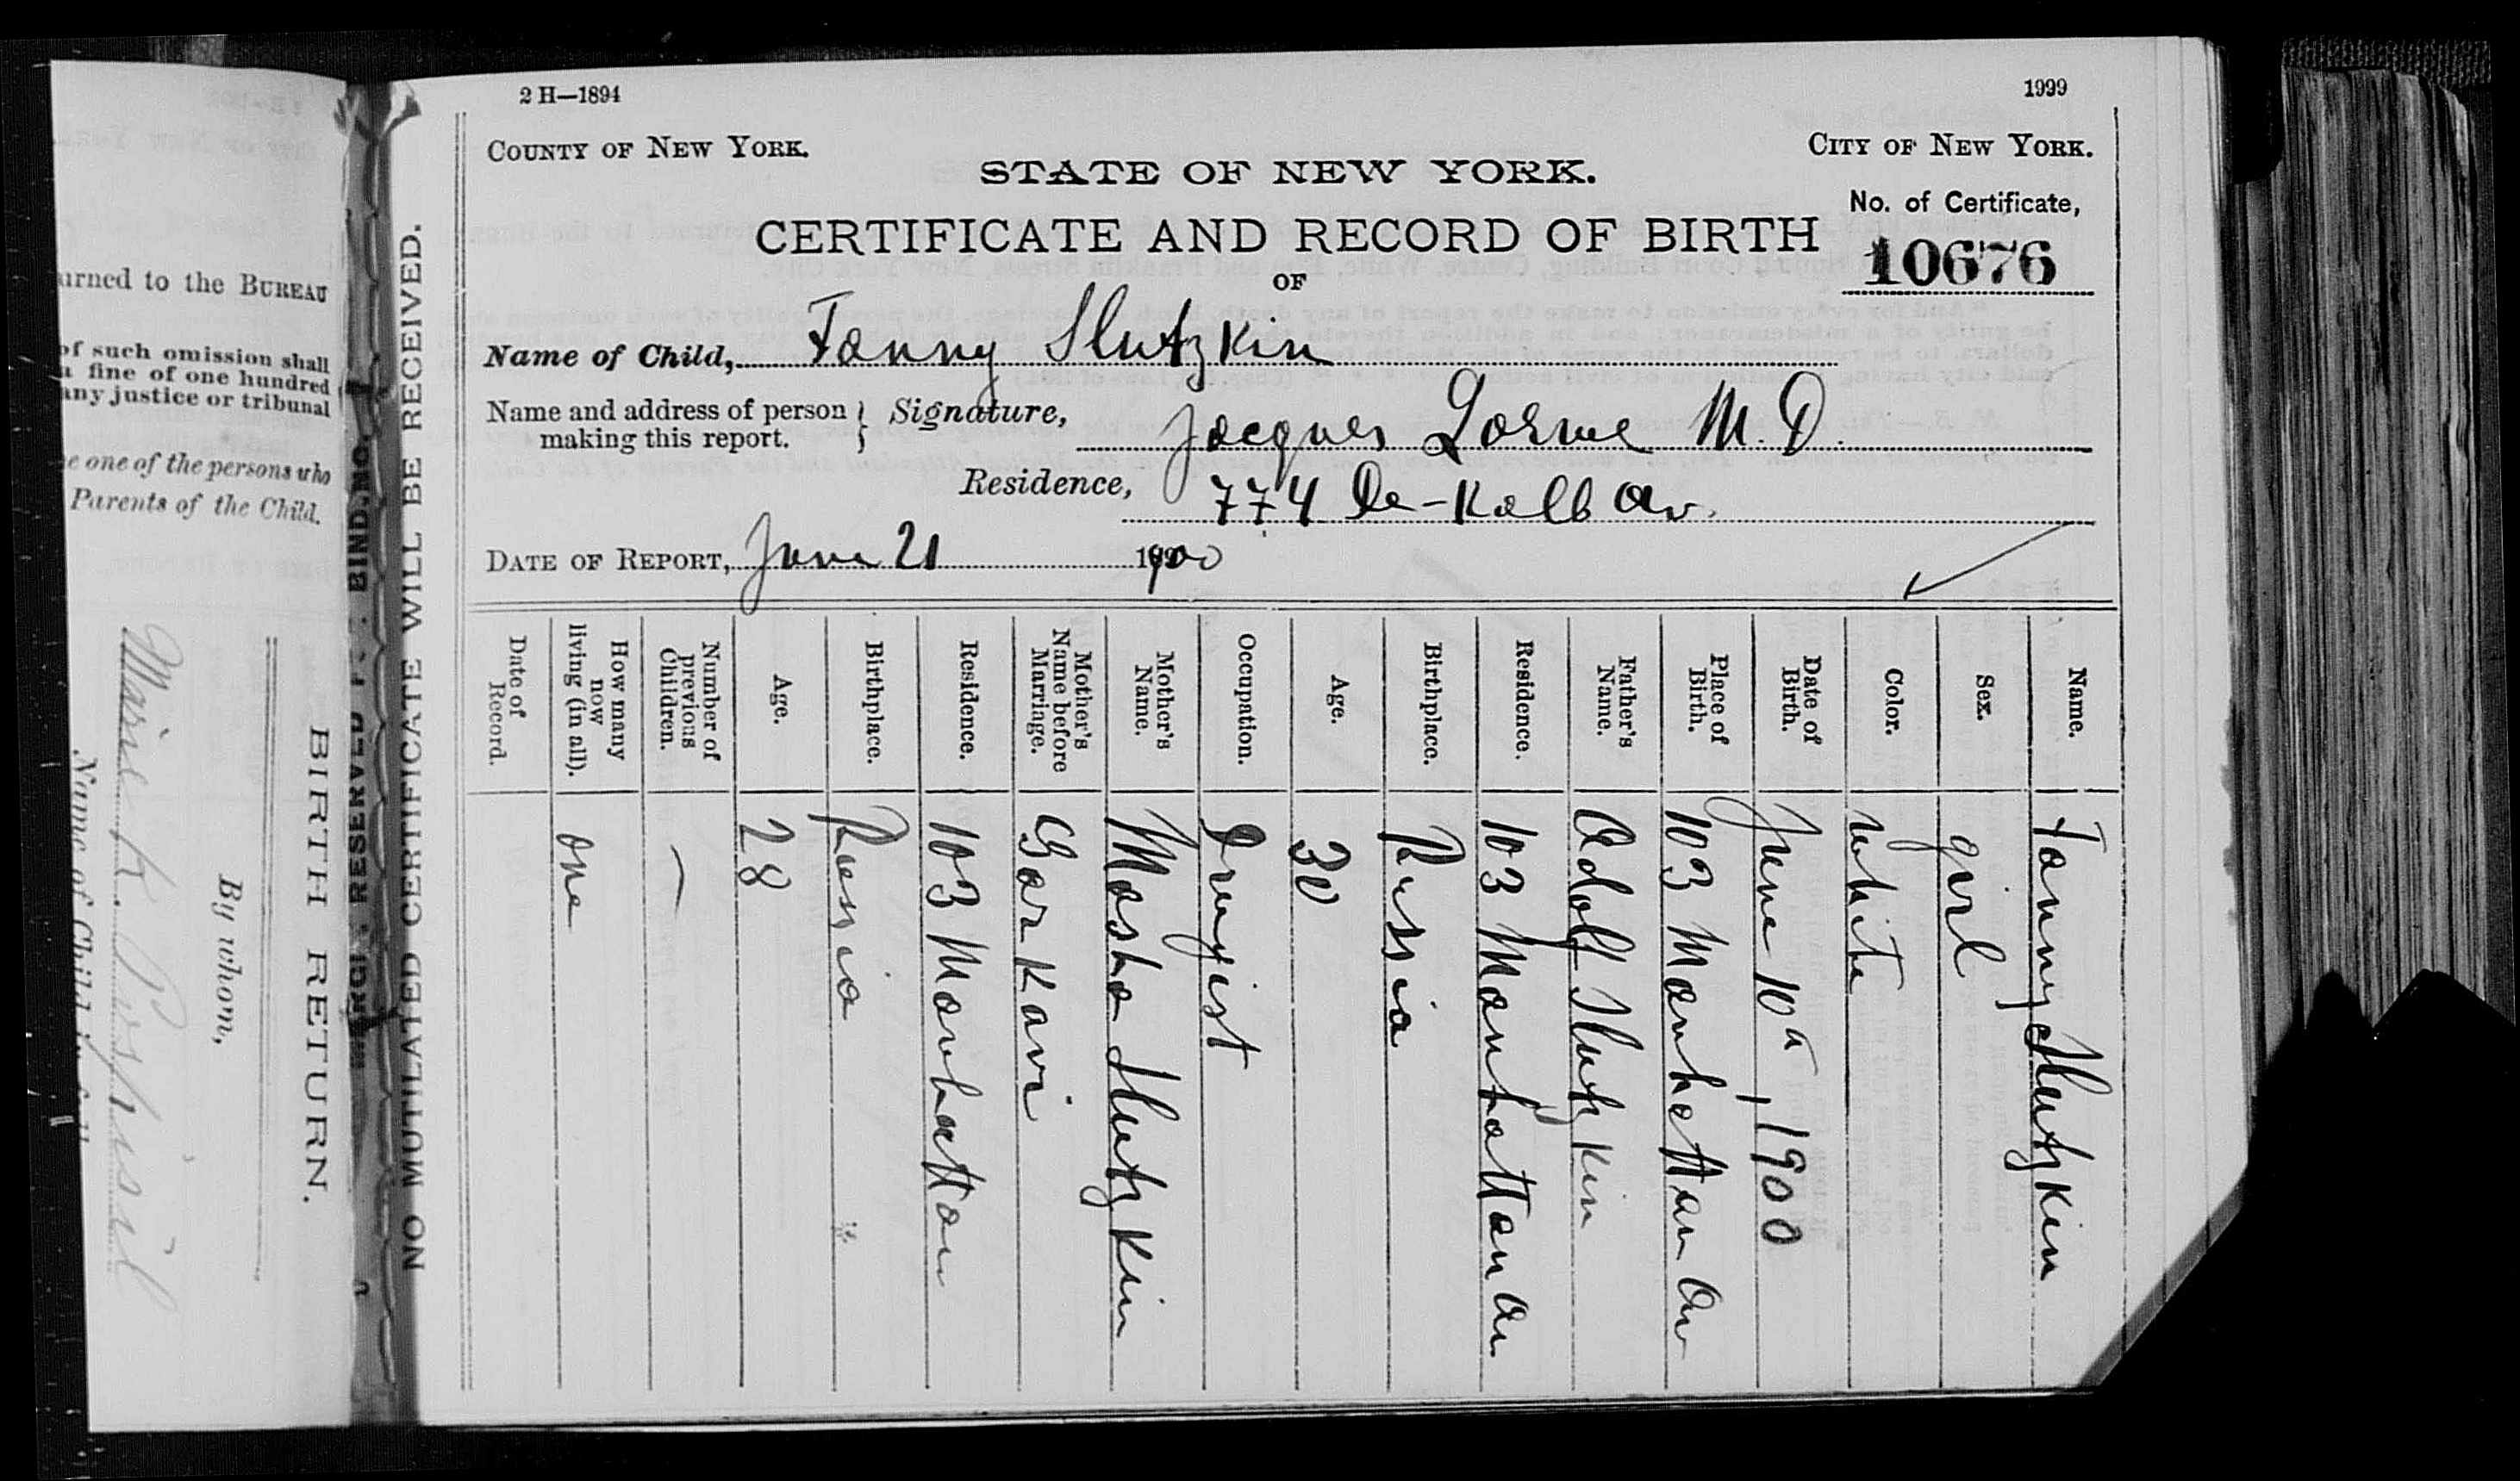 urned to the BUREAU
of such omission shall
a fine of one hundred
any justice or tribunal
e one of the persons who
Parents of the Child.
BIRTH RETURN.
By whom,
Marie K.
Name of Child
BIND.NG.
RESERVED
NO MUTILATED CERTIFICATE WILL BE RECEIVED.
2 H—1894
1999
COUNTY OF NEW YORK.
CITY OF NEW YORK.
STATE OF NEW YORK.
No. of Certificate,
CERTIFICATE AND RECORD OF BIRTH
10676
OF
Name of Child, Fanny Slutzkin
Name and address of person making this report. } Signature, Jacques M.D.
Residence, 774 De-Kalb Av.
DATE OF REPORT, June 21 1900
Name. Fanny Slutzkin
Sex. girl
Color. white
Date of Birth. June 10, 1900
Place of Birth. 103 Manhattan Av
Father's Name. Adolf Slutzkin
Residence. 103 Manhattan Av
Birthplace. Russia
Age. 30
Occupation. Drugist
Mother's Name. Masha Slutzkin
Mother's Name before Marriage. Garkavi
Residence. 103 Manhattan
Birthplace. Russia
Age. 28
Number of previous Children. —
How many now living (in all). one
Date of Record.